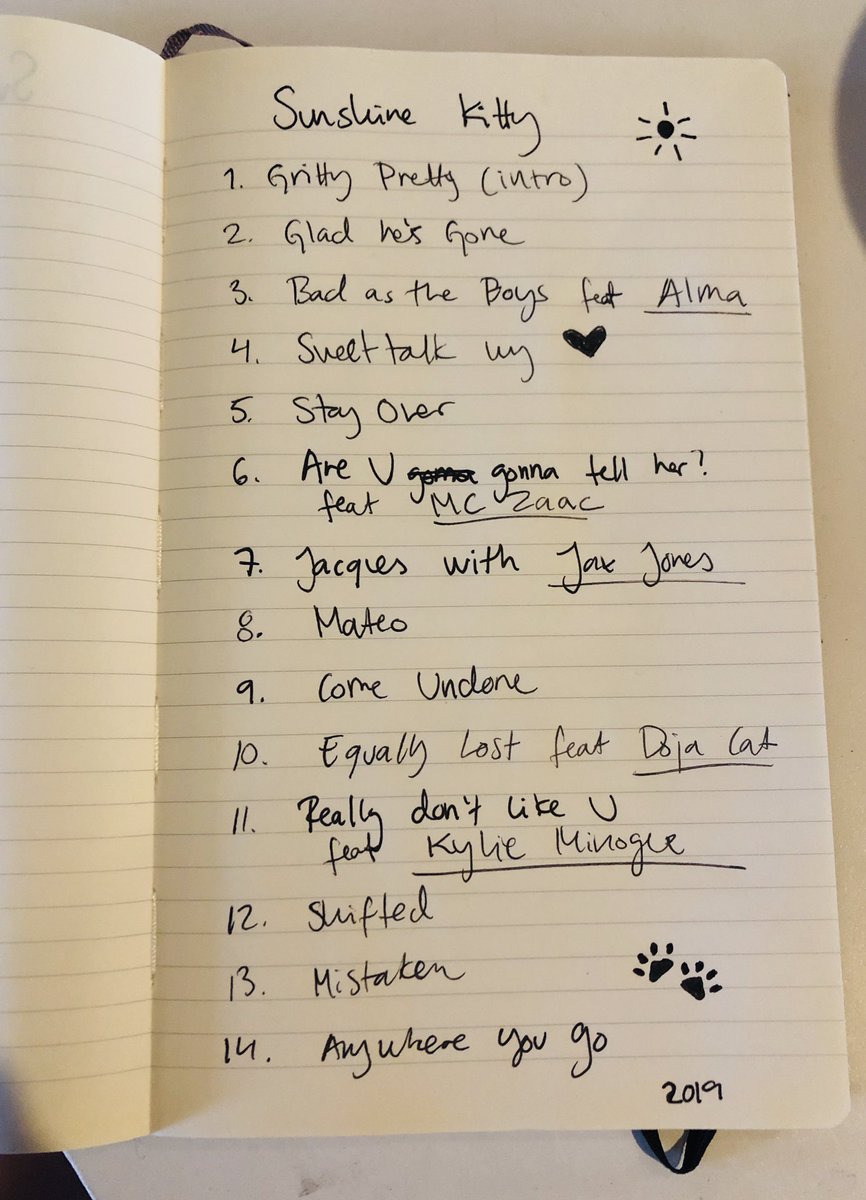 Sunshine Kitty
1. Gritty Pretty (intro)
2. Glad he's Gone
3. Bad as the Boys feat Alma
4. Sweet talk my
5. Stay Over
6. Are U gonna tell her?
feat MC Zaac
7. Jacques with Jax Jones
8. Mateo
9. Come Undone
10. Equally Lost feat Doja Cat
11. Really don't like U
feat Kylie Minogue
12. Shifted
13. Mistaken
14. Anywhere you go
2019